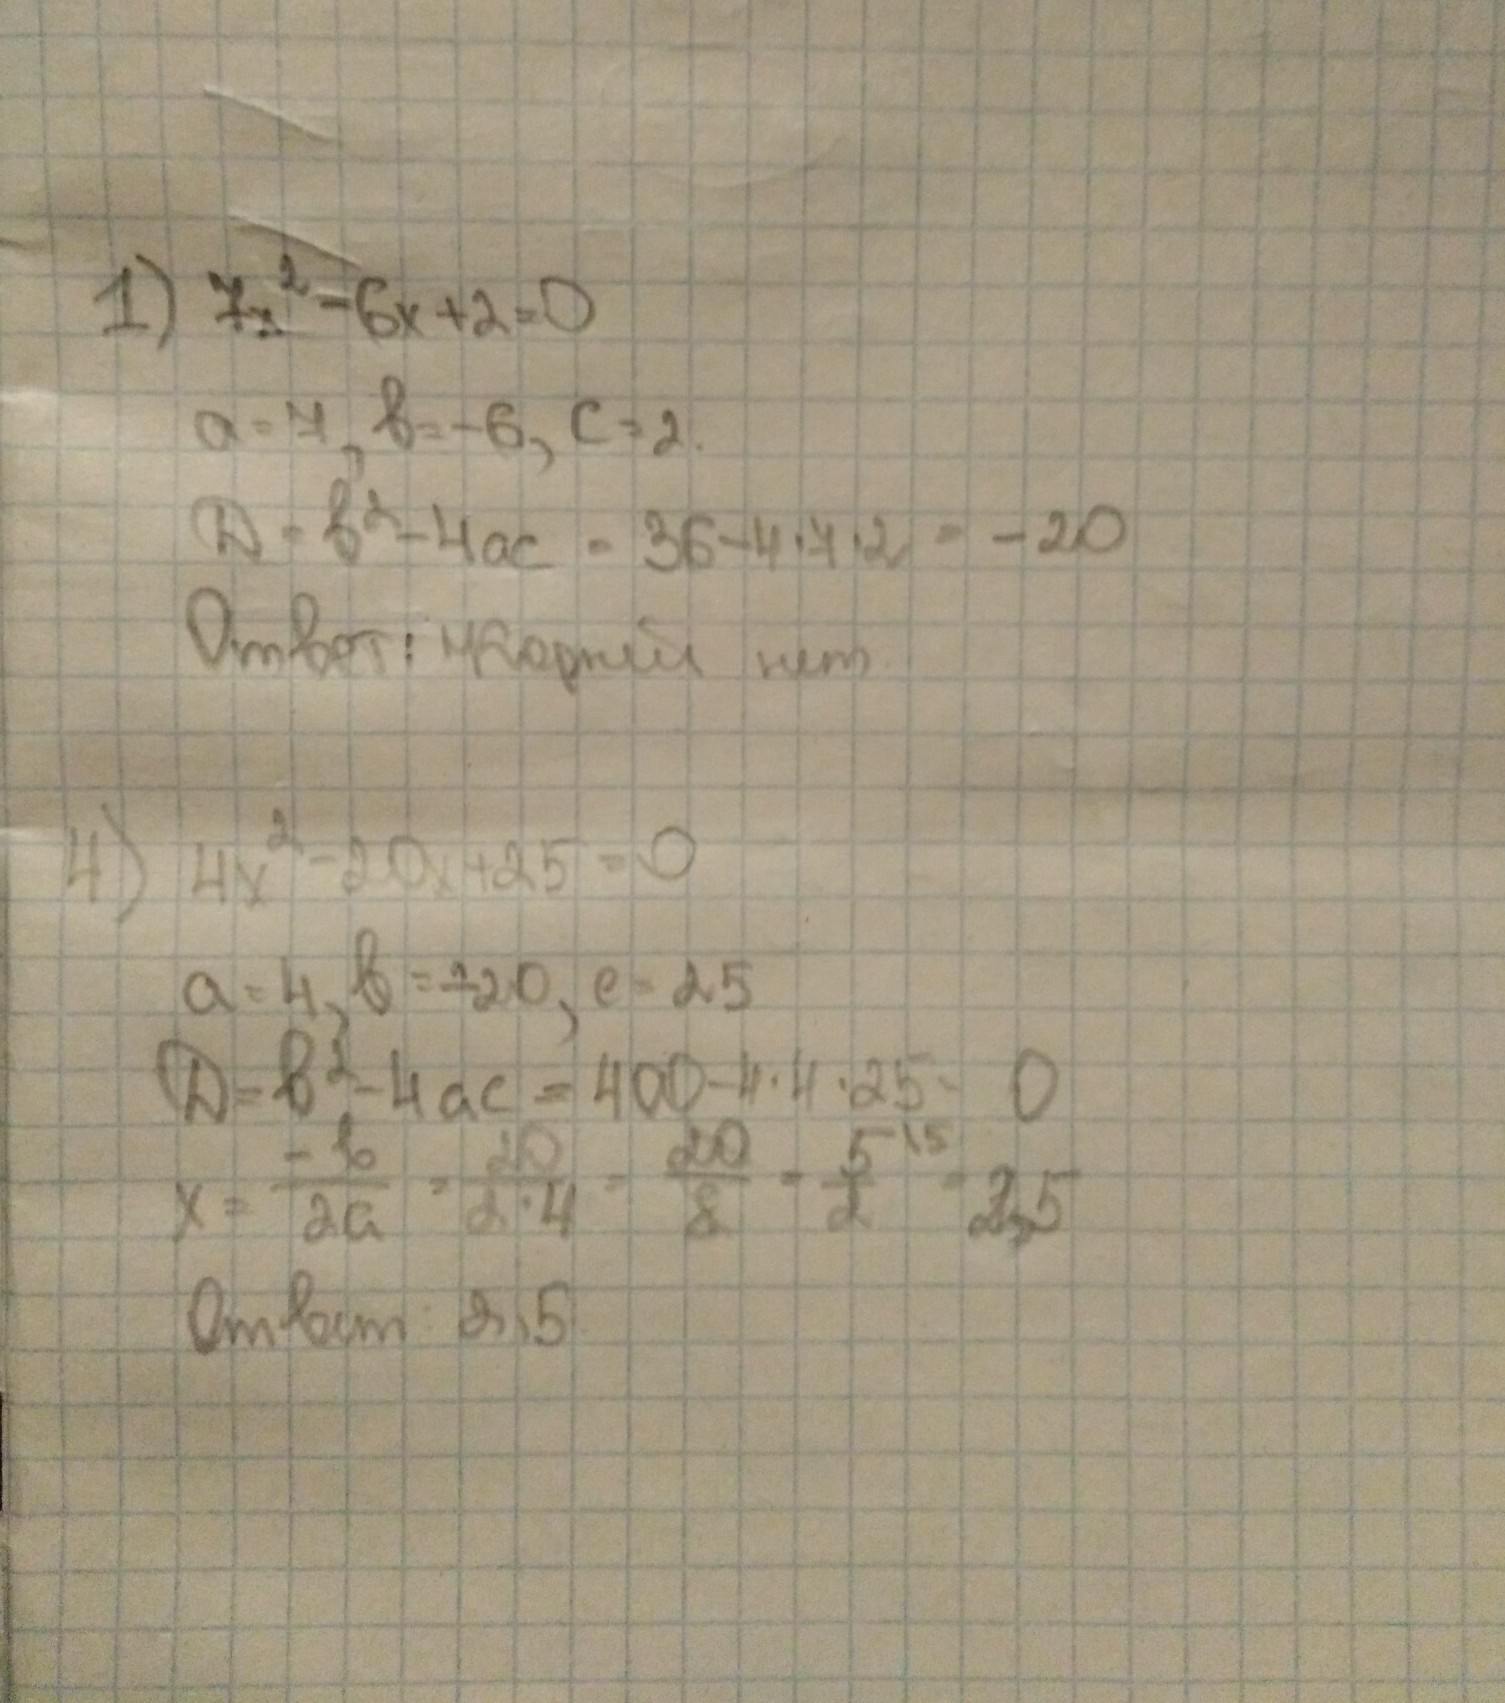 1) 7x² - 6x + 2 = 0
a = 7, b = -6, c = 2.
D = b² - 4ac = 36 - 4·7·2 = -20
Ответ: Корней нет.
4) 4x² - 20x + 25 = 0
a = 4, b = -20, c = 25
D = b² - 4ac = 400 - 4·4·25 = 0
x = -b/2a = 20/2·4 = 20/8 = 5/2 \5 = 2,5
Ответ: 2,5